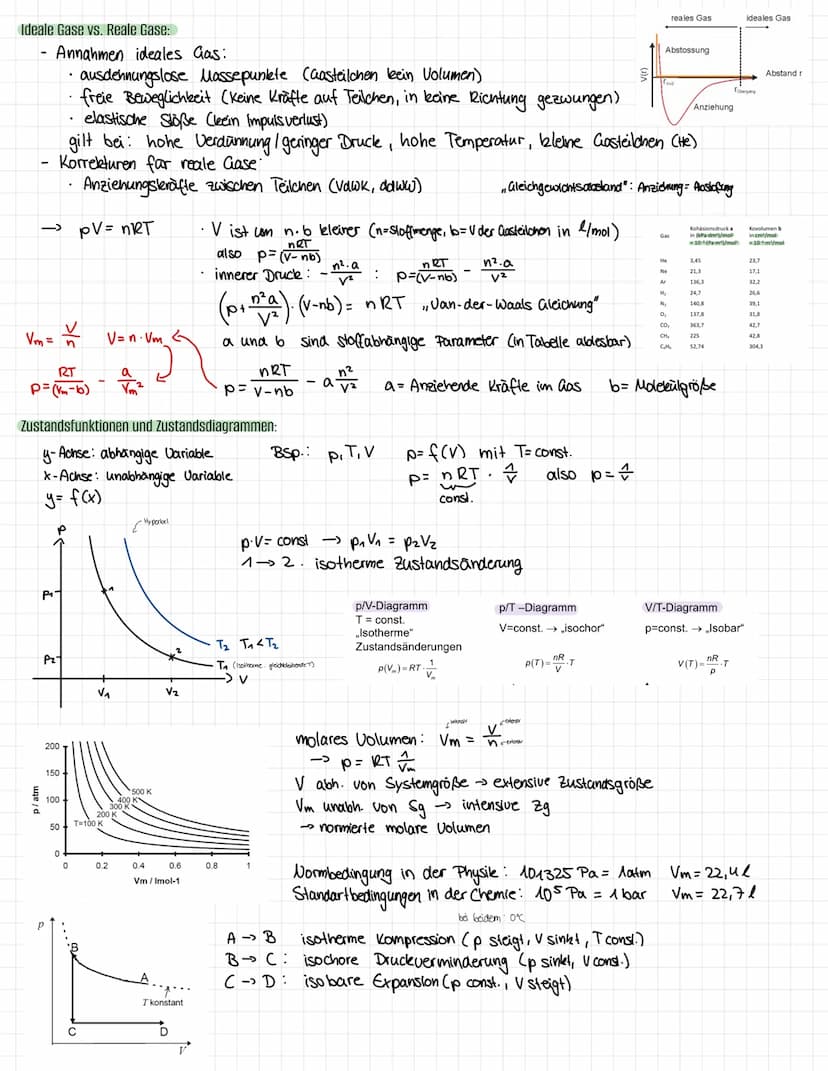 Ideale Gase vs. Reale Gase:
- Annahmen ideales Gas:
· ausdehnungslose Massepunkte (Gasteilchen kein Volumen)
· freie Beweglichkeit (keine Kräfte auf Teilchen, in keine Richtung gezwungen)
· elastische Stöße (kein Impulsverlust)
gilt bei: hohe Verdünnung/geringer Druck, hohe Temperatur, kleine Gasteilchen (He)
- Korrekturen für reale Gase:
· Anziehungskräfte zwischen Teilchen (VdWK, ddWW)
reales Gas ideales Gas
V(r)
Abstossung
Abstand r
Anziehung
„Gleichgewichtsabstand": Anziehung = Abstoßung
→ pV = nRT
· V ist um n·b kleiner (n=Stoffmenge, b=V der Gasteilchen in l/mol)
also p = nRT/(V-nb)
· innerer Druck: - n²·a/V² : p = nRT/(V-nb) - n²·a/V²
(p + n²a/V²) · (V-nb) = nRT „Van-der-Waals Gleichung"
a und b sind stoffabhängige Parameter (in Tabelle ablesbar)
p = nRT/(V-nb) - a n²/V² a = Anziehende Kräfte im Gas b = Molekülgröße
Vm = V/n V = n·Vm
p = RT/(Vm-b) - a/Vm²
Gas Kohäsionsdruck a Kovolumen b
He 3,45 23,7
Ne 21,3 17,1
Ar 136,3 32,2
H₂ 24,7 26,6
N₂ 140,8 39,1
O₂ 137,8 31,8
CO₂ 363,7 42,7
CH₄ 225 42,8
C₆H₆ 52,74 304,3
Zustandsfunktionen und Zustandsdiagrammen:
y-Achse: abhängige Variable
x-Achse: unabhängige Variable
y = f(x)
Bsp.: p, T, V p = f(V) mit T = const.
p = nRT · 1/V also p = 1/V
const.
Hyperbel
p
p₁
p₂
1
2
T₂ T₁ < T₂
T₁
V
V₁ V₂
p·V = const → p₁V₁ = p₂V₂
1 → 2 . isotherme Zustandsänderung
p/V-Diagramm
T = const.
„Isotherme"
Zustandsänderungen
p(Vₘ) = RT · 1/Vₘ
p/T –Diagramm
V=const. → „isochor"
p(T) = nR/V · T
V/T-Diagramm
p=const. → „Isobar"
V(T) = nR/p · T
p / atm
200
150
100
50
0
500 K
400 K
300 K
200 K
T=100 K
0 0.2 0.4 0.6 0.8 1
Vm / lmol-1
molares Volumen: Vm = V/n
→ p = RT 1/Vm
V abh. von Systemgröße → extensive Zustandsgröße
Vm unabh. von Sg → intensive Zg
→ normierte molare Volumen
Normbedingung in der Physik: 101325 Pa = 1atm Vm = 22,4 l
Standartbedingungen in der Chemie: 10⁵ Pa = 1 bar Vm = 22,7 l
bei beidem: 0°C
p
B
A
T konstant
C D
V
A → B isotherme Kompression (p steigt, V sinkt, T const.)
B → C: isochore Druckverminderung (p sinkt, V const.)
C → D: isobare Expansion (p const., V steigt)